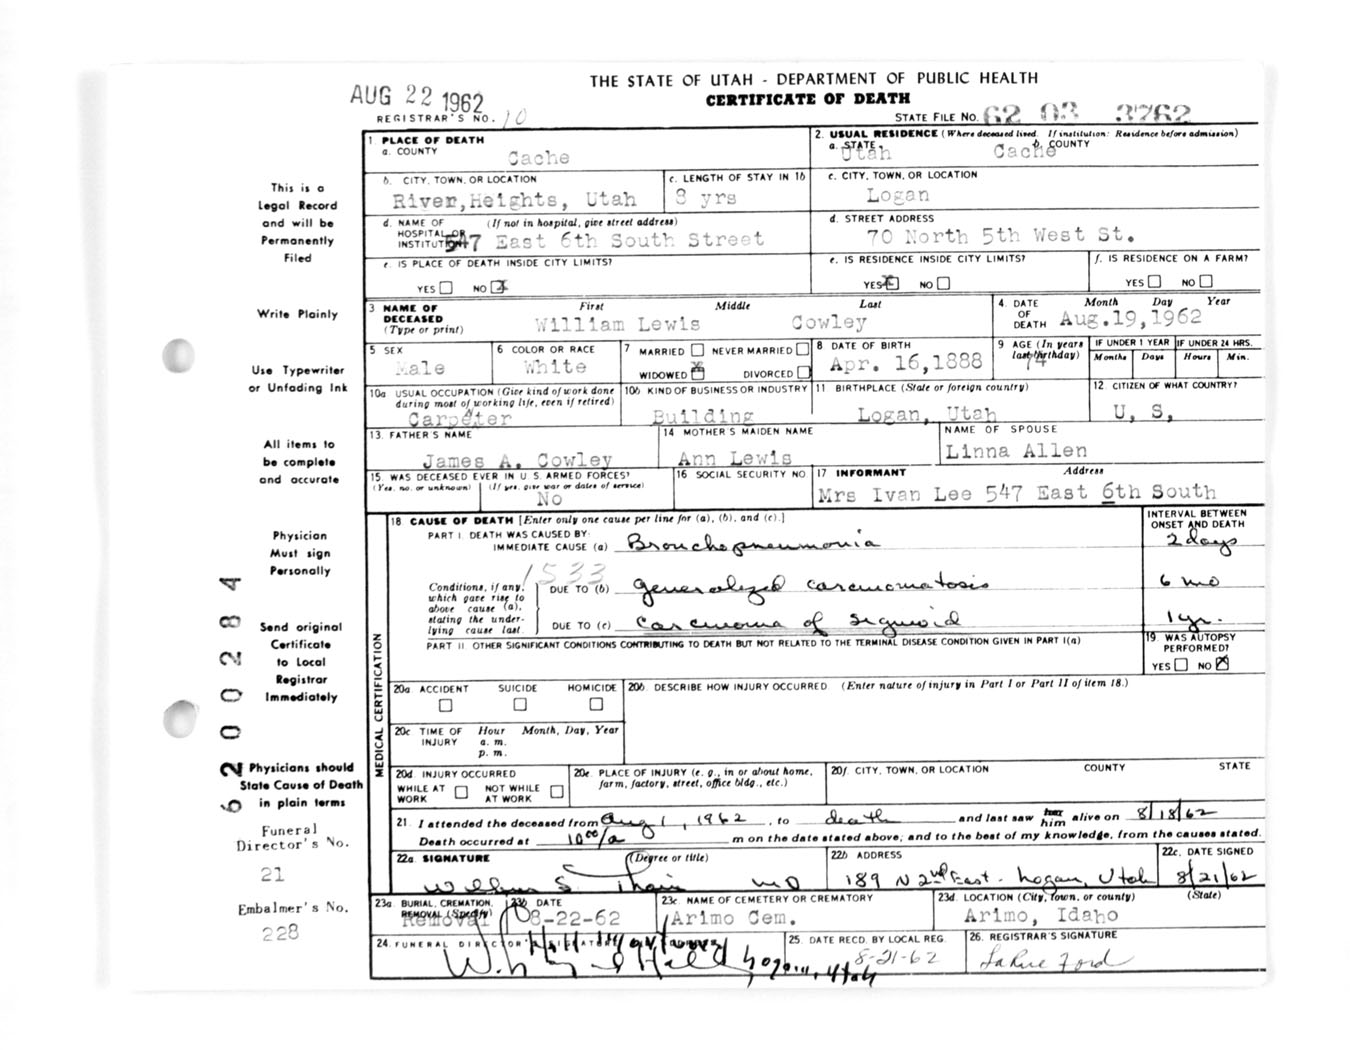 THE STATE OF UTAH - DEPARTMENT OF PUBLIC HEALTH
CERTIFICATE OF DEATH
AUG 22 1962
REGISTRAR'S NO. 10
STATE FILE NO. 62 03 3762
This is a
Legal Record
and will be
Permanently
Filed
Write Plainly
Use Typewriter
or Unfading Ink
All items to
be complete
and accurate
Physician
Must sign
Personally
Send original
Certificate
to Local
Registrar
Immediately
Physicians should
State Cause of Death
in plain terms
Funeral
Director's No.
21
Embalmer's No.
228
62 00284
1. PLACE OF DEATH
a. COUNTY
Cache
2. USUAL RESIDENCE (Where deceased lived. If institution: Residence before admission)
a. STATE b. COUNTY
Utah Cache
b. CITY, TOWN, OR LOCATION
River,Heights, Utah
c. LENGTH OF STAY IN 1b
8 yrs
c. CITY, TOWN, OR LOCATION
Logan
d. NAME OF (If not in hospital, give street address)
HOSPITAL OR
INSTITUTION 547 East 6th South Street
d. STREET ADDRESS
70 North 5th West St.
e. IS PLACE OF DEATH INSIDE CITY LIMITS?
YES NO X
e. IS RESIDENCE INSIDE CITY LIMITS?
YES X NO
f. IS RESIDENCE ON A FARM?
YES NO
3 NAME OF DECEASED (Type or print) First Middle Last
William Lewis Cowley
4. DATE OF DEATH Month Day Year
Aug.19,1962
5 SEX
Male
6 COLOR OR RACE
White
7 MARRIED NEVER MARRIED
WIDOWED X DIVORCED
8 DATE OF BIRTH
Apr. 16,1888
9 AGE (In years last birthday)
74
IF UNDER 1 YEAR IF UNDER 24 HRS.
Months Days Hours Min.
10a USUAL OCCUPATION (Give kind of work done during most of working life, even if retired)
Carpeter
n
10b KIND OF BUSINESS OR INDUSTRY
Building
11 BIRTHPLACE (State or foreign country)
Logan, Utah
12 CITIZEN OF WHAT COUNTRY?
U, S,
13. FATHER'S NAME
James A. Cowley
14 MOTHER'S MAIDEN NAME
Ann Lewis
NAME OF SPOUSE
Linna Allen
15. WAS DECEASED EVER IN U. S. ARMED FORCES?
(Yes, no, or unknown) (If yes, give war or dates of service)
No
16 SOCIAL SECURITY NO
17 INFORMANT Address
Mrs Ivan Lee 547 East 6th South
MEDICAL CERTIFICATION
18 CAUSE OF DEATH [Enter only one cause per line for (a), (b), and (c).]
INTERVAL BETWEEN ONSET AND DEATH
PART I. DEATH WAS CAUSED BY:
IMMEDIATE CAUSE (a) Bronchopneumonia 2 days
1533
Conditions, if any, which gave rise to above cause (a), stating the underlying cause last.
DUE TO (b) generalized carcinomatosis 6 mo
DUE TO (c) carcinoma of sigmoid 1 yr.
PART II. OTHER SIGNIFICANT CONDITIONS CONTRIBUTING TO DEATH BUT NOT RELATED TO THE TERMINAL DISEASE CONDITION GIVEN IN PART I(a)
19. WAS AUTOPSY PERFORMED?
YES NO X
20a ACCIDENT SUICIDE HOMICIDE
20b. DESCRIBE HOW INJURY OCCURRED. (Enter nature of injury in Part I or Part II of item 18.)
20c TIME OF INJURY Hour Month, Day, Year
a. m.
p. m.
20d. INJURY OCCURRED
WHILE AT WORK NOT WHILE AT WORK
20e. PLACE OF INJURY (e. g., in or about home, farm, factory, street, office bldg., etc.)
20f. CITY, TOWN, OR LOCATION COUNTY STATE
21. I attended the deceased from Aug 1, 1962, to death and last saw her him alive on 8/18/62
Death occurred at 10 00/a m on the date stated above; and to the best of my knowledge, from the causes stated.
22a. SIGNATURE (Degree or title)
Wilbur S. Thain MD
22b ADDRESS
189 N 2nd East - Logan, Utah
22c. DATE SIGNED
8/21/62
23a. BURIAL, CREMATION, REMOVAL (Specify)
Removal
23b DATE
8-22-62
23c. NAME OF CEMETERY OR CREMATORY
Arimo Cem.
23d. LOCATION (City, town, or county) (State)
Arimo, Idaho
24. FUNERAL DIRECTOR'S SIGNATURE ADDRESS
Logan, Utah
25. DATE RECD. BY LOCAL REG.
8-21-62
26. REGISTRAR'S SIGNATURE
LaRue Ford